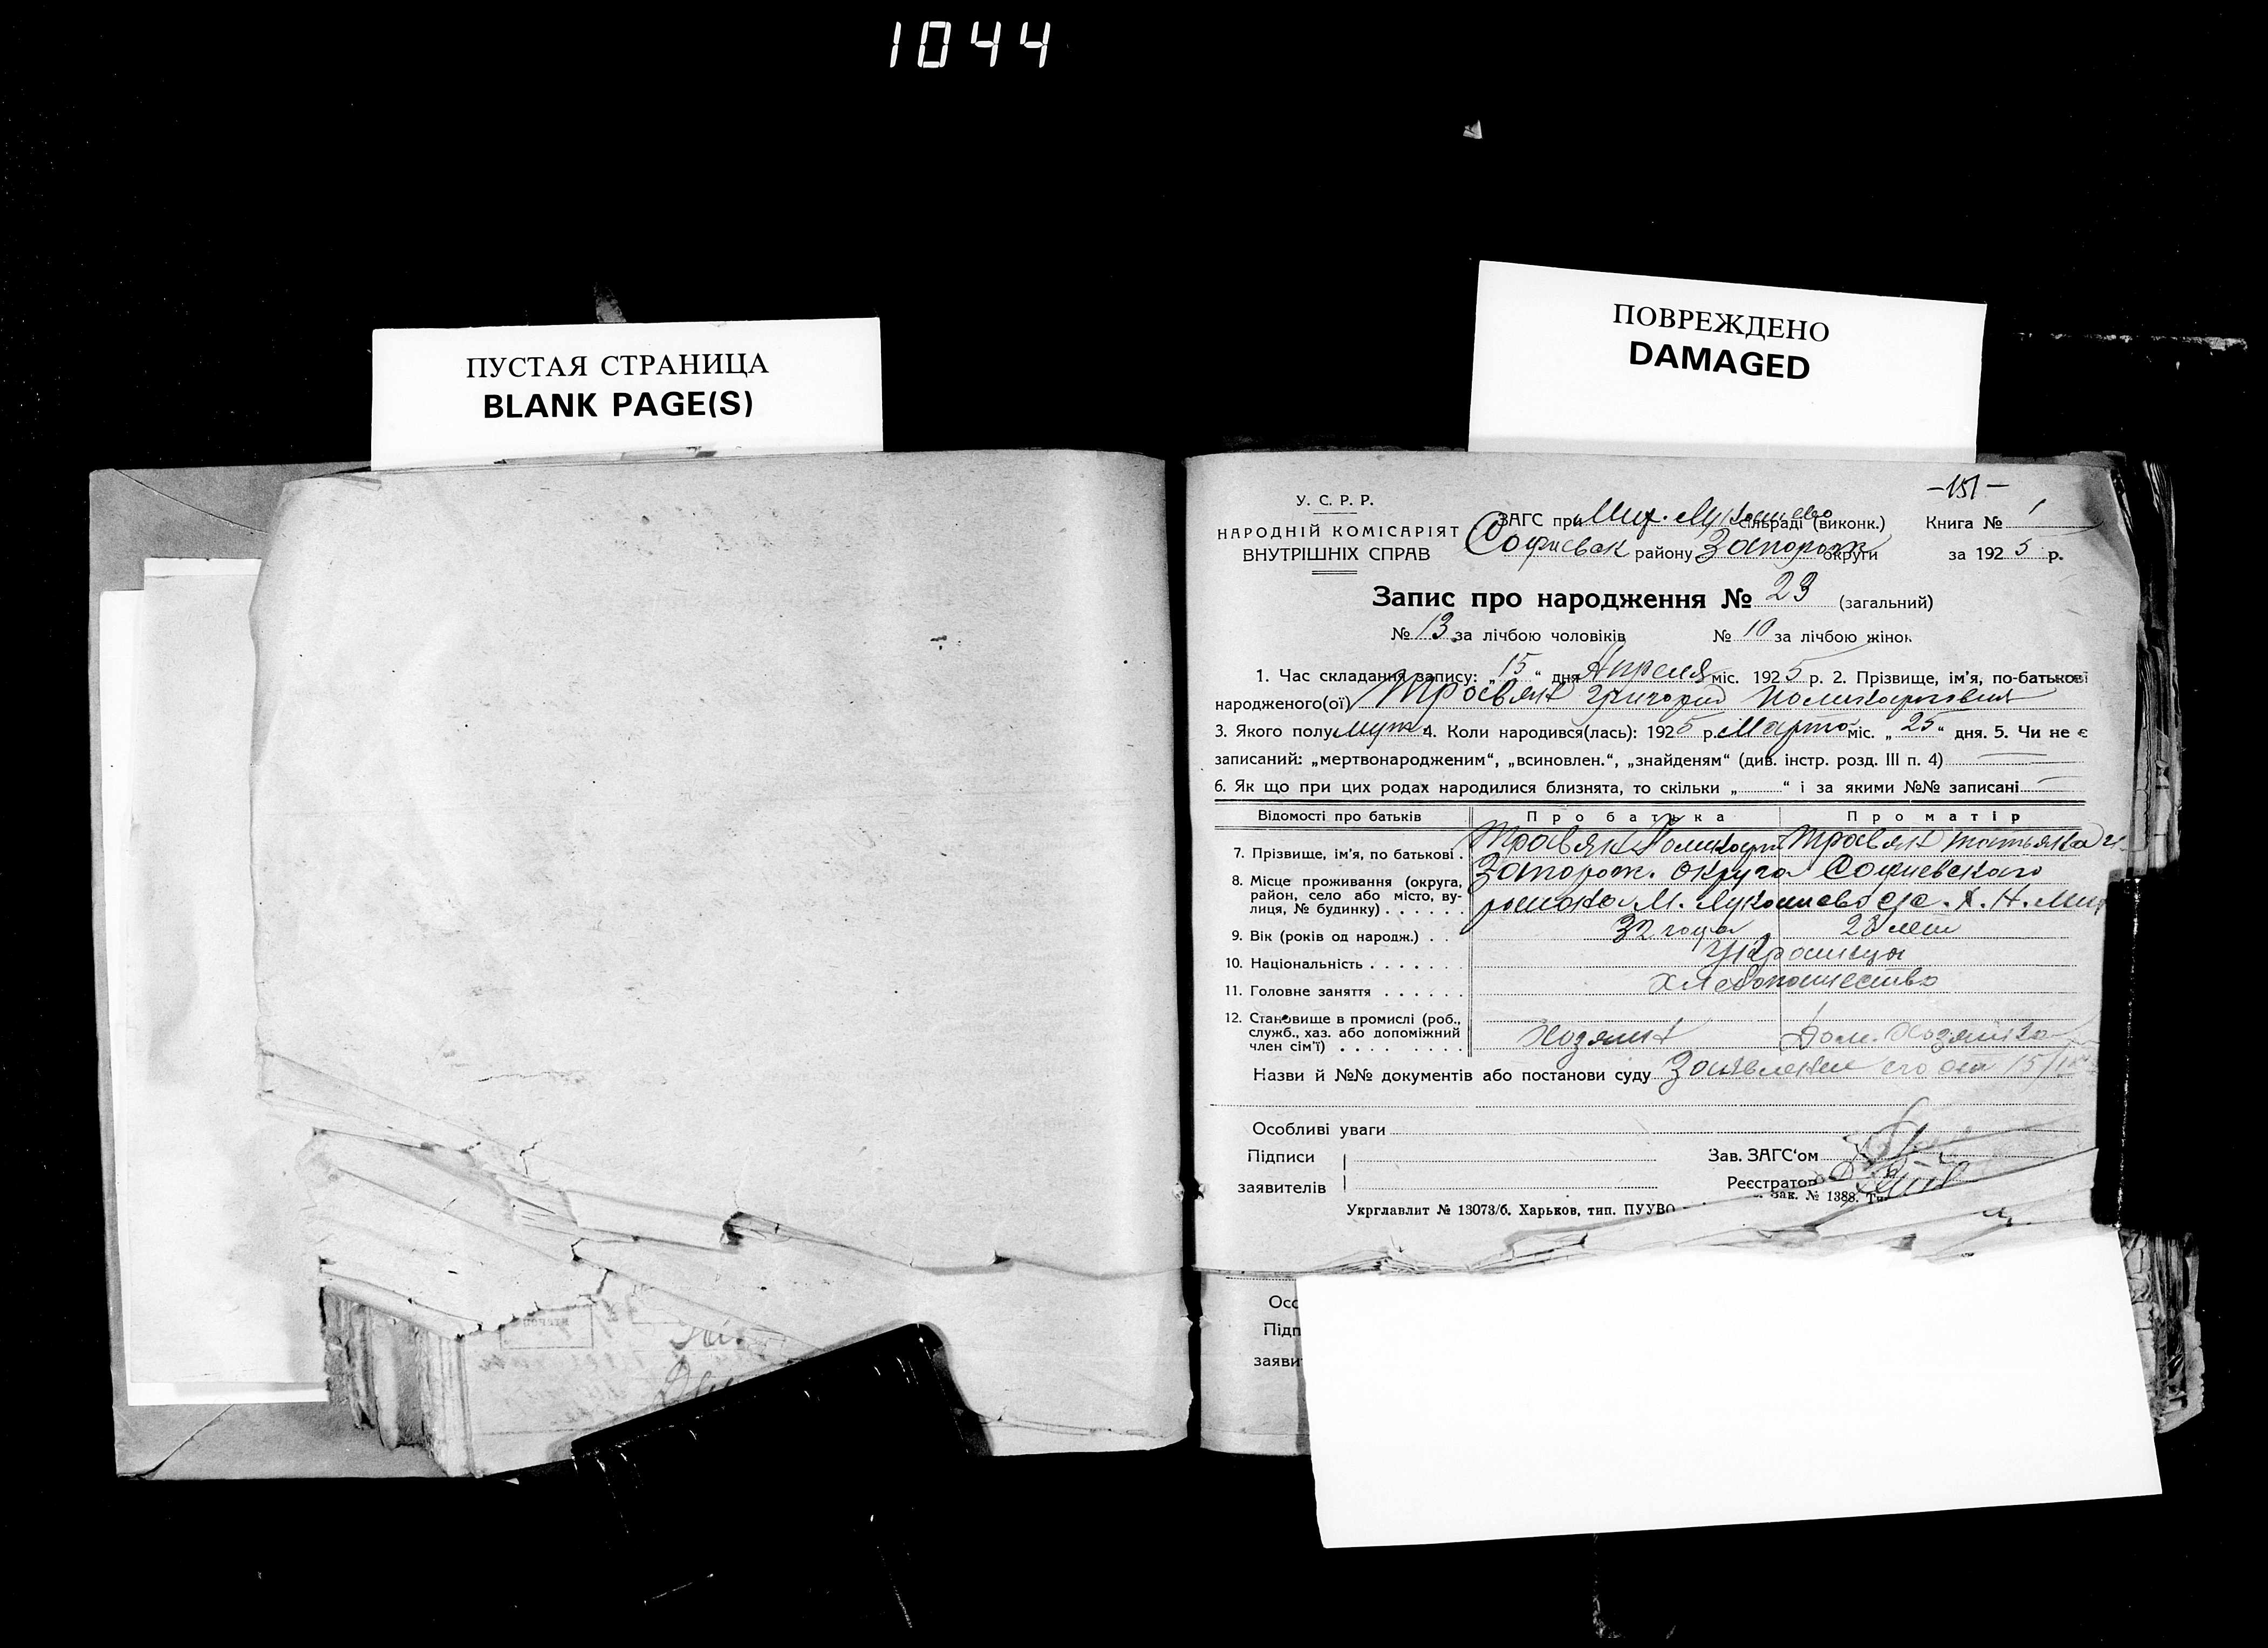 1044
ПУСТАЯ СТРАНИЦА
BLANK PAGE(S)
ПОВРЕЖДЕНО
DAMAGED
-151-
У. С. Р. Р.
НАРОДНІЙ КОМІСАРІЯТ
ВНУТРІШНІХ СПРАВ
ЗАГС при Мих. Лукашево сільраді (виконк.)
Софиевск району Запорож округи
Книга № 1
за 1925 р.
Запис про народження № 23 (загальний)
№ 13 за лічбою чоловіків № 10 за лічбою жінок
1. Час складання запису: „15“ дня Апреля міс. 1925 р. 2. Прізвище, ім'я, по-батькові
народженого(ої) Григорий Поликарпович
3. Якого полу муж. 4. Коли народився(лась): 1925 р. Марта міс. „25“ дня. 5. Чи не є
записаний: „мертвонародженим“, „всиновлен.“, „знайденям“ (див. інстр. розд. III п. 4)
6. Як що при цих родах народилися близнята, то скільки „ “ і за якими №№ записані
Відомості про батьків Про батька Про матір
7. Прізвище, ім'я, по батькові . Поликарп Татьяна
8. Місце проживання (округа, район, село або місто, вулиця, № будинку) . . . . . . Запорож. округа Софиевского
района М. Лукашево
9. Вік (років од народж.) . . 32 года 28 лет
10. Національність . . . . . . . Украинцы
11. Головне заняття . . . . . . Хлебопашество
12. Становище в промислі (роб.,
служб., хаз. або допоміжний
член сім'ї) . . . . . . . . . Хозяин Дом. Хозяйка
Назви й №№ документів або постанови суду Заявление
Особливі уваги
Підписи
заявителів
Зав. ЗАГС'ом
Реєстратор
Укрглавлит № 13073/б. Харьков, тип. ПУУВО
Зак. № 1388.
Осо
Підп
заяви